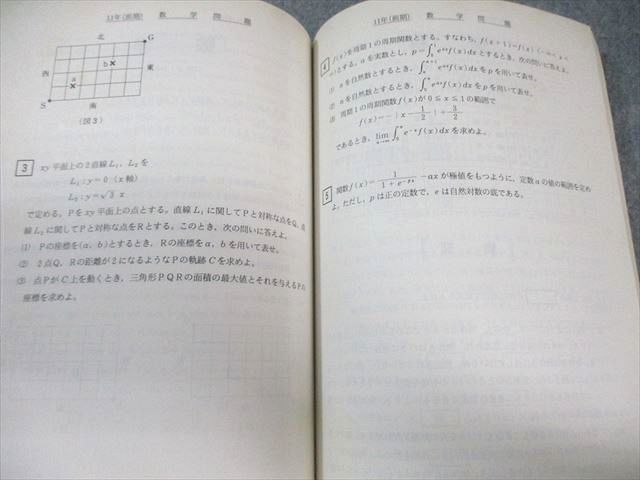 11年(前期) 数学問題
北
G
b
西
東
a
S
南
(図3)
3 xy平面上の2直線L₁, L₂を
L₁:y=0 (x軸)
L₂:y=√3 x
で定める。Pをxy平面上の点とする。直線L₁に関してPと対称な点をQ, 直
線L₂に関してPと対称な点をRとする。このとき, 次の問いに答えよ。
(1) Pの座標を(a, b)とするとき, Rの座標をa, bを用いて表せ。
(2) 2点Q, Rの距離が2になるようなPの軌跡Cを求めよ。
(3) 点PがC上を動くとき, 三角形PQRの面積の最大値とそれを与えるPの
座標を求めよ。
11年(前期) 数学問題
4 f(x)を周期1の周期関数とする。すなわち, f(x+1)=f(x) (-∞<x<
∞)とする。aを実数とし, p=∫₀¹eᵃˣf(x)dxとするとき, 次の問いに答えよ。
(1) nを自然数とするとき, ∫ₙⁿ⁺¹eᵃˣf(x)dxをpを用いて表せ。
(2) nを自然数とするとき, ∫₀ⁿeᵃˣf(x)dxをpを用いて表せ。
(3) 周期1の周期関数f(x)が0≦x≦1の範囲で
f(x)=-|x-1/2|+3/2
であるとき, lim n→∞ ∫₀ⁿe⁻ˣf(x)dxを求めよ。
5 関数f(x)=1/(1+e⁻ᵖˣ)-axが極値をもつように, 定数aの値の範囲を定め
よ。ただし, pは正の定数で, eは自然対数の底である。